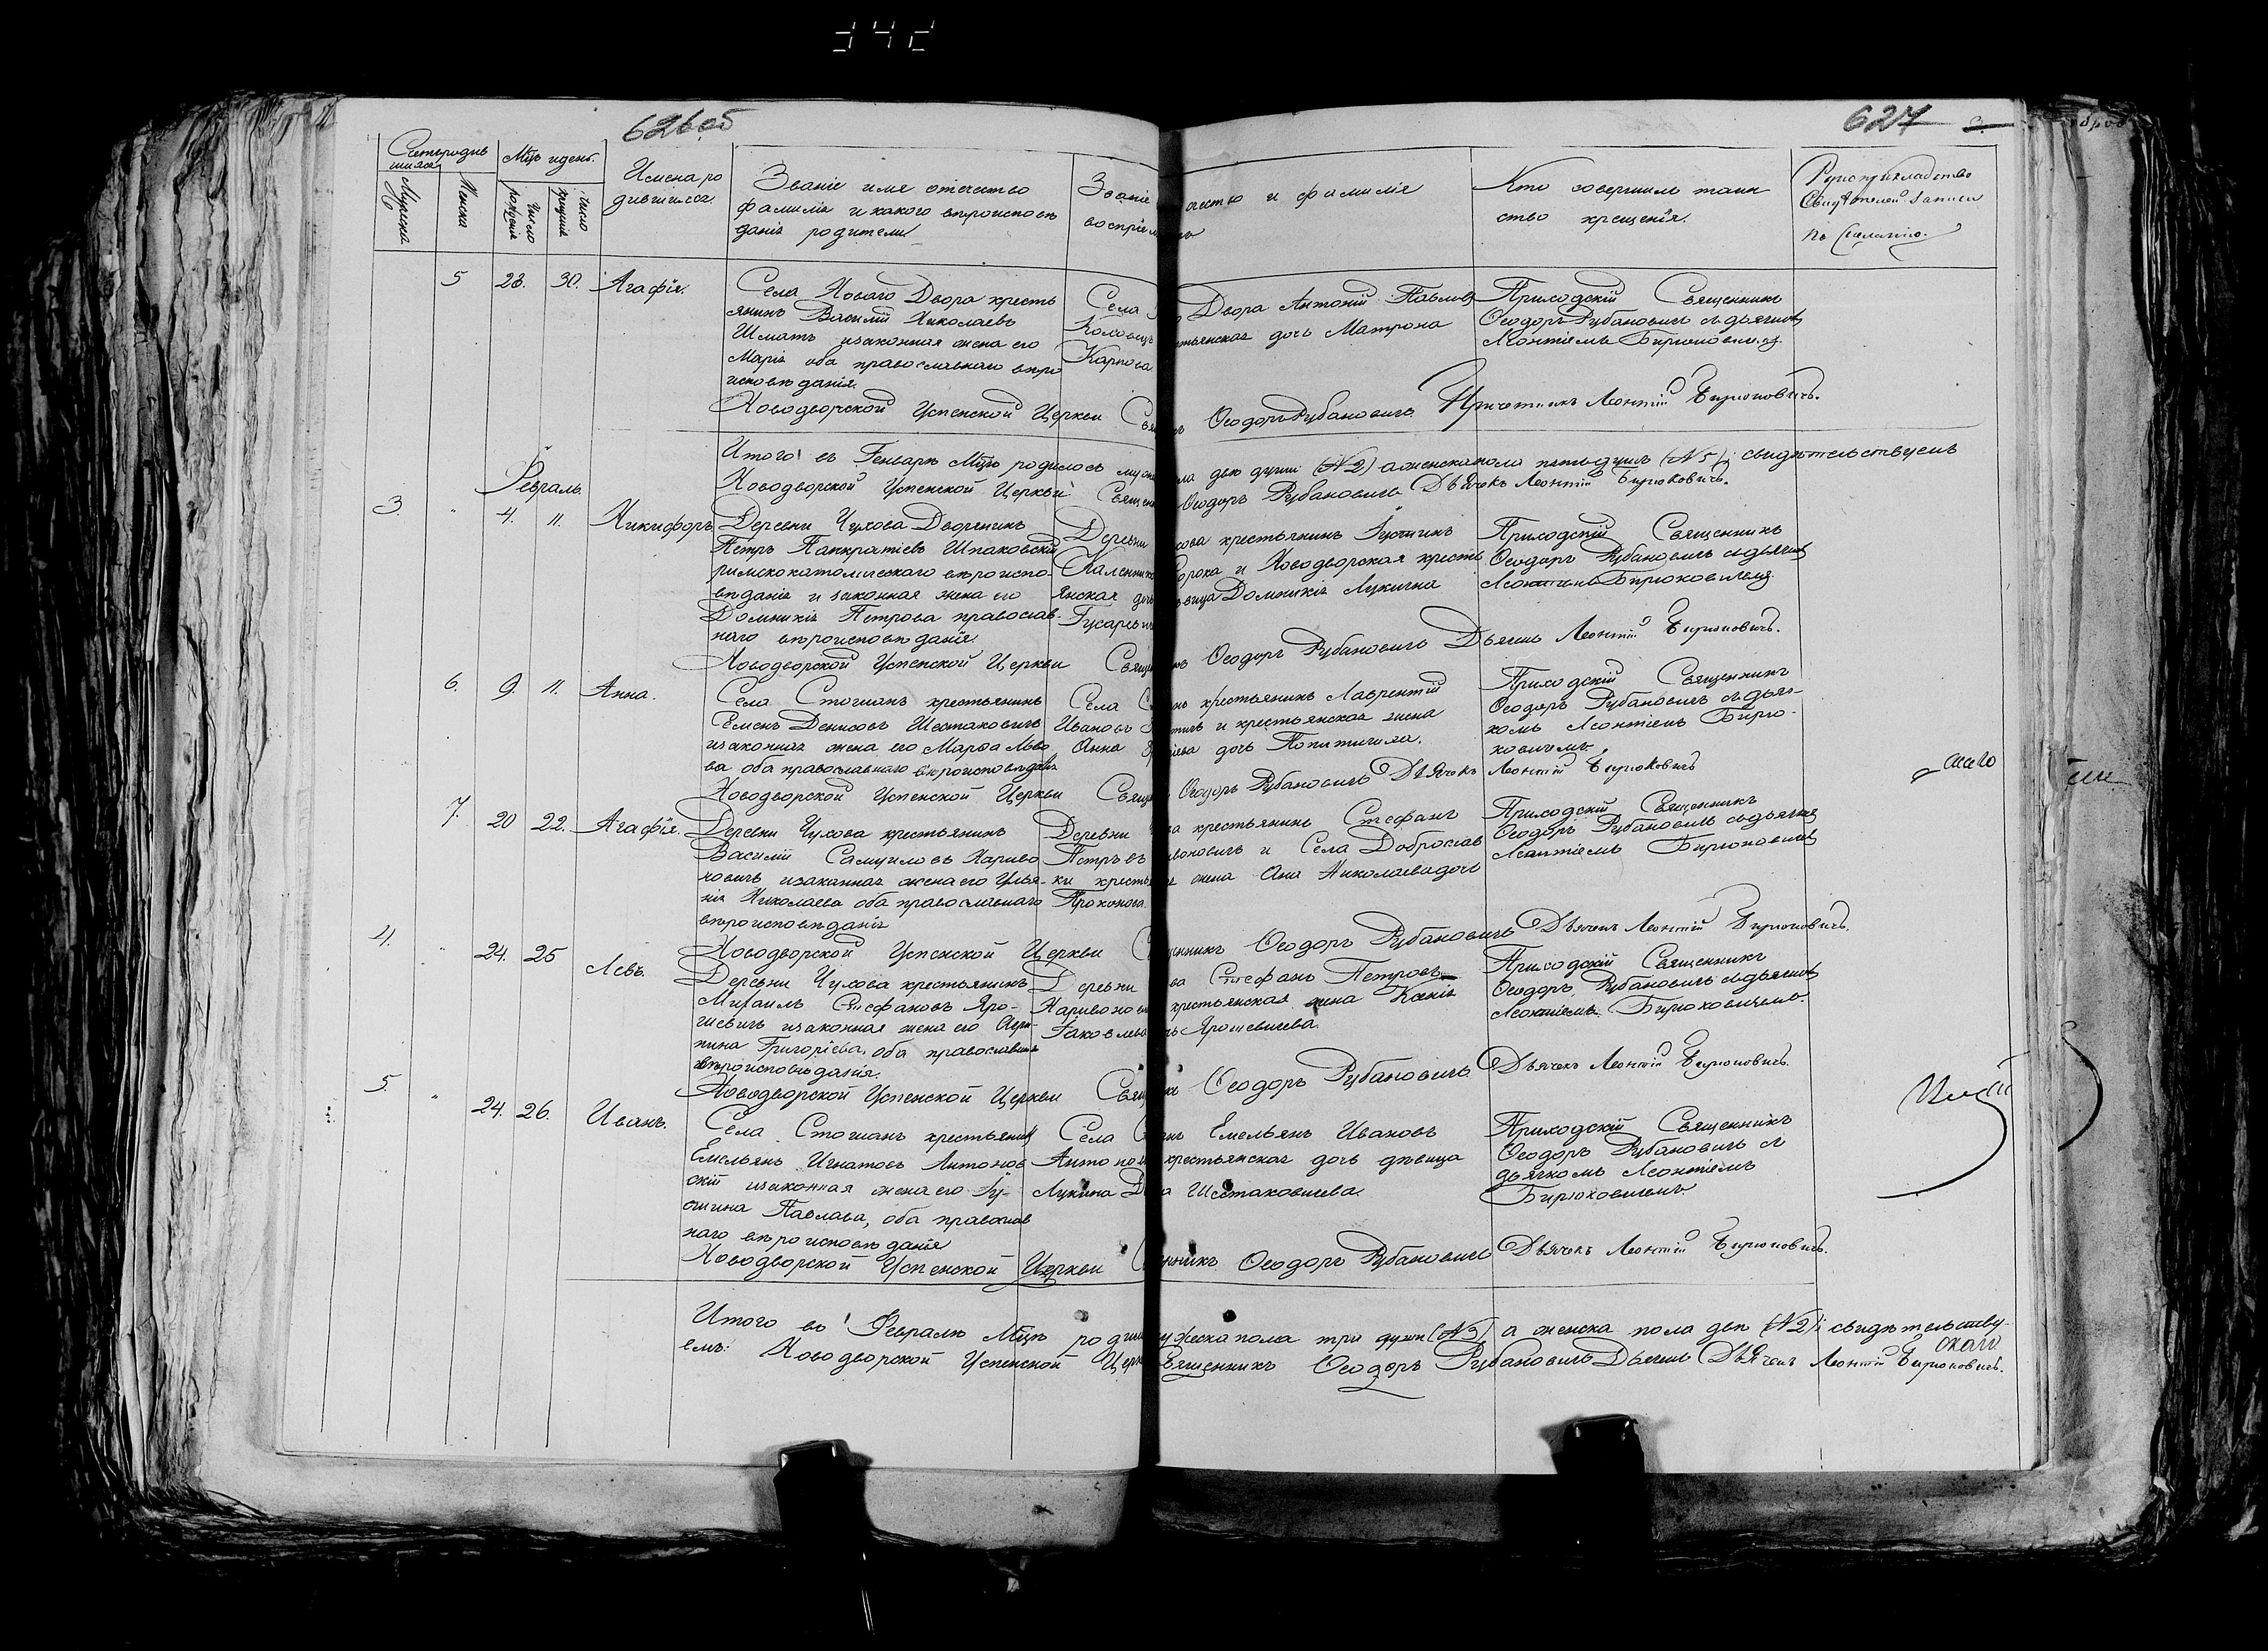 626 об
627 3.
Счетъ родив
шихся
Мужска
Женска
Мцъ и день.
число
рожденія
число
крещенія
Имена ро
дившихся.
Званіе имя отечество
фамилія и какого вѣроисповѣ
данія родители
Званіе
ество и фамилія
воспріем
Кто совершилъ таин
ство крещенія.
Рукоприкладство
Свидѣтелей записи
по желанію.
5 28. 30. Агафія.
Села Новаго Двора кресть
янинъ Василій Николаевъ
Шматъ и законная жена его
Марія оба православнаго вѣро
исповѣданія.
Села Двора Антоній Павловъ
крестьянская дочь Матрона
Карпова
Приходскій Священникъ
Ѳеодоръ Рубановичъ съ дьячкомъ
Леонтіемъ Бирюковичемъ.
Новодворской Успенской Церкви Ѳеодоръ Рубановичъ. Причетникъ Леонтій Бирюковичъ.
Итого въ Генварѣ Мцѣ родилось двѣ души (№2) а женска пола пять душъ (№5) свидѣтельствуемъ
Новодворской Успенской Церкви Ѳеодоръ Рубановичъ Дьячекъ Леонтій Бирюковичъ.
Февраль.
3. " 4. 11. Никифоръ
Деревни Чухова Дворянинъ
Петръ Панкратіевъ Шпаковскій
римскокатолическаго вѣроиспо-
вѣданія и законная жена его
Домникія Петрова православ-
наго вѣроисповѣданія.
Деревни крестьянинъ Іустинъ
и Новодворская кресть
янская Домникія Лукична
Гусаревич
Приходскій Священникъ
Ѳеодоръ Рубановичъ съ дьячкомъ
Леонтіемъ Бирюковичемъ.
Новодворской Успенской Церкви Ѳеодоръ Рубановичъ Дьячекъ Леонтій Бирюковичъ.
6. 9. 11. Анна.
Села Стошанъ крестьянинъ
Семенъ Денисовъ Шестаковичъ
и законная жена его Марѳа Льво
ва оба православнаго вѣроисповѣданія
Села крестьянинъ Лаврентій
Ивановъ и крестьянская жена
Анна дочь Попитичева.
Приходскій Священникъ
Ѳеодоръ Рубановичъ съ дьяч-
комъ Леонтіемъ Бирю-
ковичемъ.
Новодворской Успенской Церкви Ѳеодоръ Рубановичъ Дьячекъ Леонтій Бирюковичъ
7. 20 22. Агафія.
Деревни Чухова крестьянинъ
Василій Самуиловъ Нариво
новичъ и законная жена его Улья-
нія Николаева оба православнаго
вѣроисповѣданія
Деревни крестьянинъ Стефанъ
Петровъ и Села Доброслав
ки жена Анна Николаева дочь
Приходскій Священникъ
Ѳеодоръ Рубановичъ съ дьячкомъ
Леонтіемъ Бирюковичемъ
Новодворской Успенской Церкви Ѳеодоръ Рубановичъ Дьячекъ Леонтій Бирюковичъ.
4. " 24. 25 Левъ.
Деревни Чухова крестьянинъ
Михаилъ Стефановъ Яро-
шевичъ и законная жена его Агри-
пина Григоріева, оба православнаго
вѣроисповѣданія.
Деревни Стефанъ Петровъ
крестьянская жена Ксенія
Іаковлева Ярошевичева.
Приходскій Священникъ
Ѳеодоръ Рубановичъ съ дьячкомъ
Леонтіемъ Бирюковичемъ.
Новодворской Успенской Церкви Ѳеодоръ Рубановичъ. Дьячекъ Леонтій Бирюковичъ.
5. " 24. 26. Иванъ.
Села Стошанъ крестьянинъ
Емельянъ Игнатовъ Антонов
скій и законная жена его Іу-
стина Павлова, оба православ
наго вѣроисповѣданія
Села Емельянъ Ивановъ
крестьянская дочь дѣвица
Лукина Шестаковичева.
Приходскій Священникъ
Ѳеодоръ Рубановичъ съ
дьячкомъ Леонтіемъ
Бирюковичемъ.
Новодворской Успенской Церкви Ѳеодоръ Рубановичъ Дьячекъ Леонтій Бирюковичъ.
Итого въ Февралѣ Мцѣ пола три души (№3) а женска пола двѣ (№2) свидѣтельству-
емъ: Новодворской Успенской Священникъ Ѳеодоръ Рубановичъ Дьячекъ Леонтій Бирюковичъ.